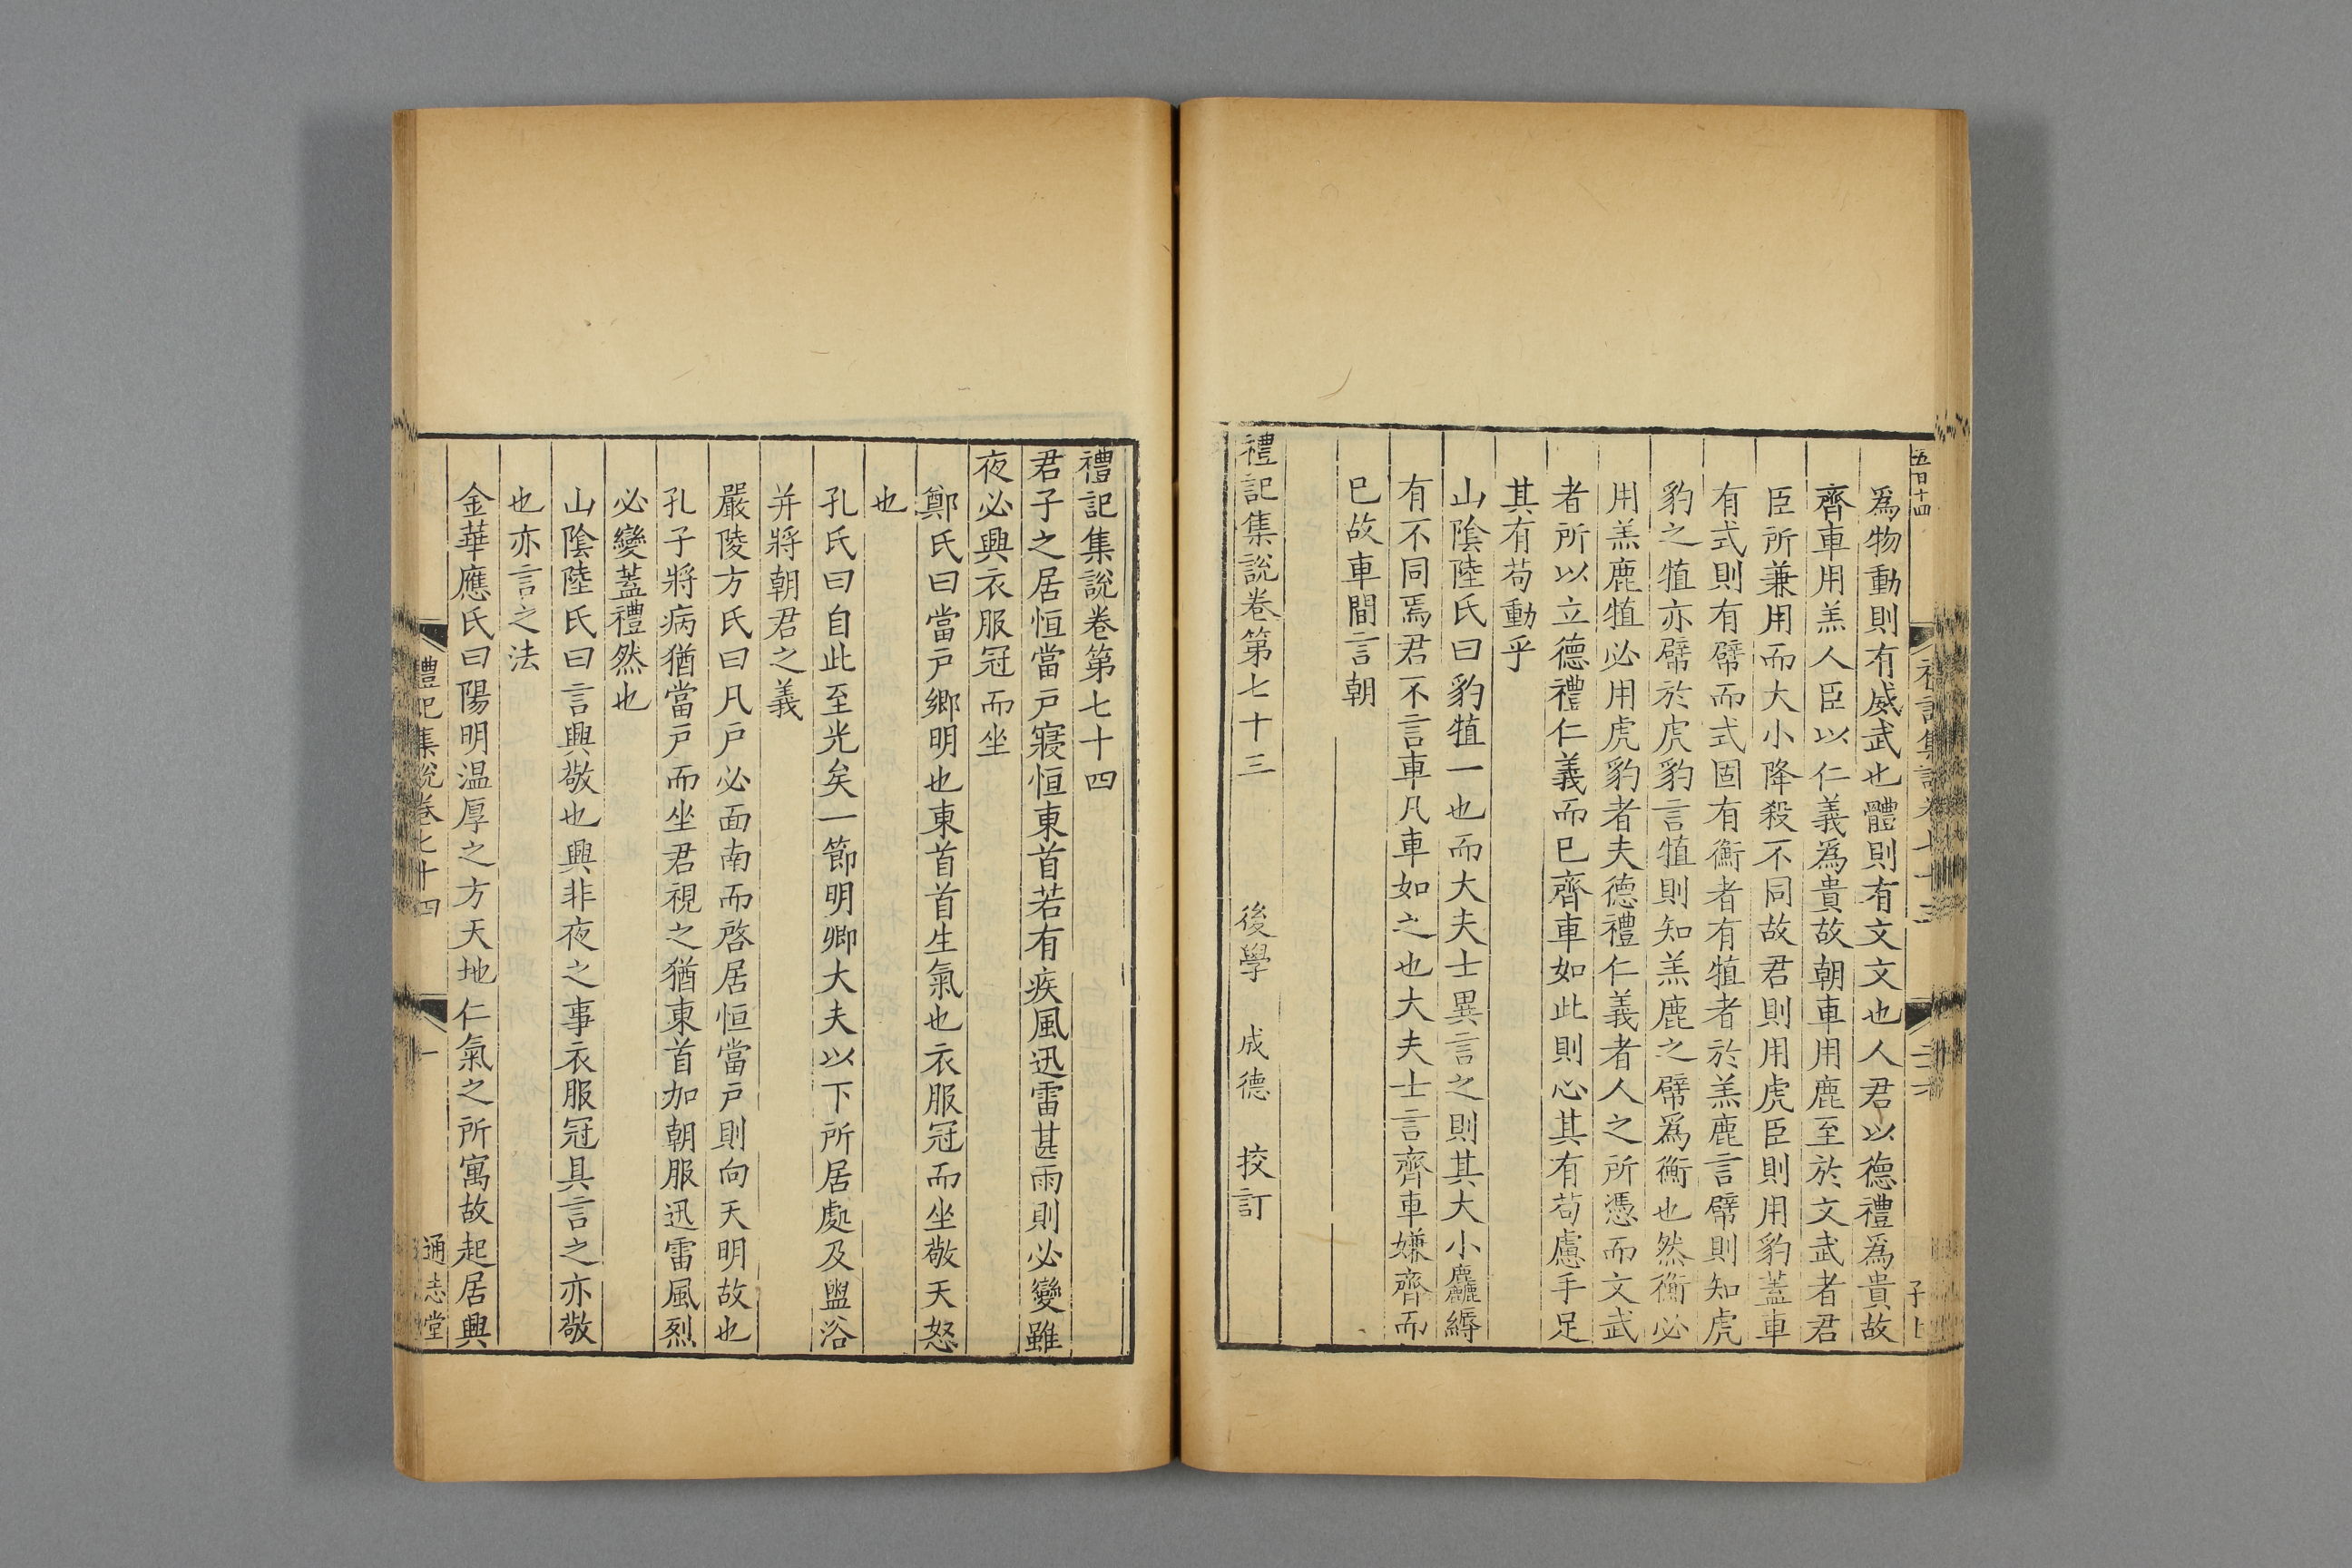 五百十四
爲物動則有威武也體則有文文也人君以德禮爲貴故
齊車用羔人臣以仁義爲貴故朝車用鹿至於文武者君
臣所兼用而大小降殺不同故君則用虎臣則用豹蓋車
有式則有幦而式固有衡者有犆者於羔鹿言幦則知虎
豹之犆亦幦於虎豹言犆則知羔鹿之幦爲衡也然衡必
用羔鹿犆必用虎豹者夫德禮仁義者人之所憑而文武
者所以立德禮仁義而已齊車如此則心其有苟慮手足
其有苟動乎
山陰陸氏曰豹犆一也而大夫士異言之則其大小麤縟
有不同焉君不言車凡車如之也大夫士言齊車嫌齊而
已故車間言朝
禮記集說卷第七十三 後學 成德 挍訂
禮記集說卷第七十四
君子之居恒當戶寢恒東首若有疾風迅雷甚雨則必變雖
夜必興衣服冠而坐
鄭氏曰當戶鄉明也東首首生氣也衣服冠而坐敬天怒
也
孔氏曰自此至光矣一節明卿大夫以下所居處及盥浴
并將朝君之義
嚴陵方氏曰凡戶必面南而啓居恒當戶則向天明故也
孔子將病猶當戶而坐君視之猶東首加朝服迅雷風烈
必變蓋禮然也
山陰陸氏曰言興敬也興非夜之事衣服冠具言之亦敬
也亦言之法
金華應氏曰陽明温厚之方天地仁氣之所寓故起居興
禮記集說卷七十四 一 通志堂